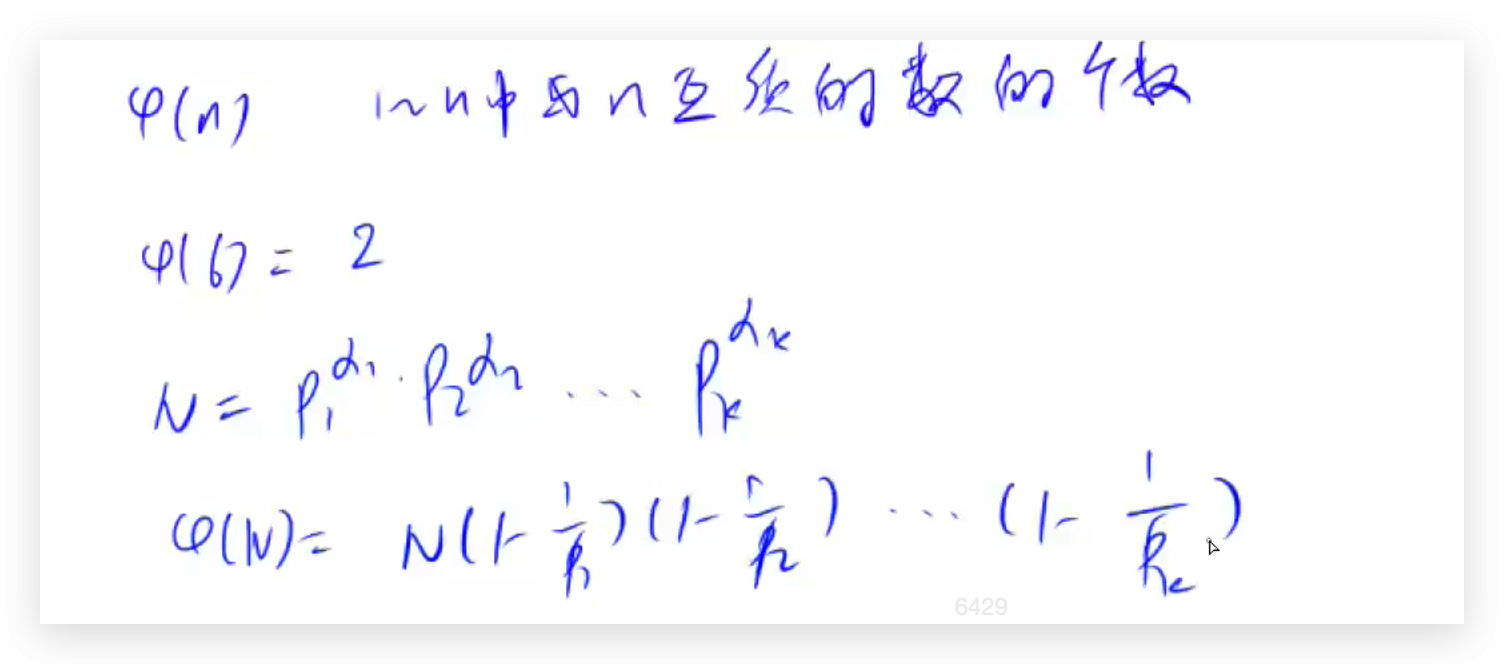 φ(n) 1~n中与n互质的数的个数
φ(6) = 2
N = P₁^α₁ · P₂^α₂ ... Pₖ^αₖ
φ(N) = N(1-1/P₁)(1-1/P₂) ... (1-1/Pₖ)
6429